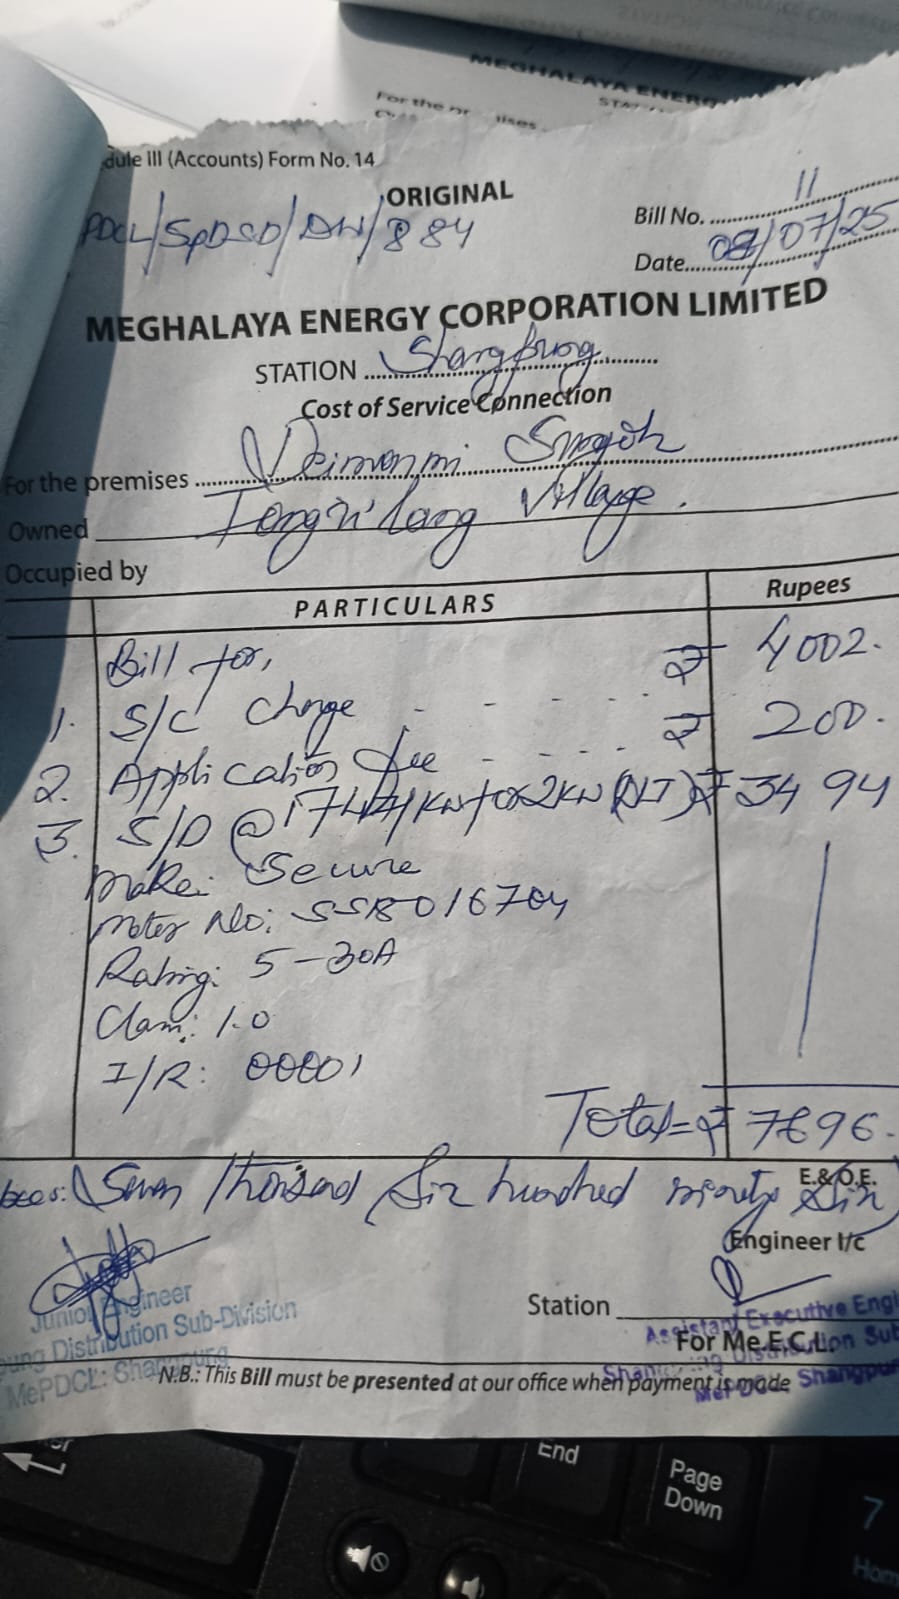 MEGHALAYA ENERGY
For the
dule III (Accounts) Form No. 14
ORIGINAL
PDCL/SpDSD/DW/884
Bill No. 11
Date 08/07/25
MEGHALAYA ENERGY CORPORATION LIMITED
STATION Shangpung
Cost of Service Connection
For the premises
Owned Village.
Occupied by
PARTICULARS Rupees
Bill for, ₹ 4002.
1. S/C Charge - - - - ₹ 200.
2. Application fee - - - - ₹ 3494
3. S/D @ 1747/KW for 2KW (DLT)
Make: Secure
Meter No: SS8016704
Rating: 5-30A
Class: 1.0
I/R: 00001
Total = ₹ 7696.
Seven Thousand Six hundred ninety Six
E.&O.E.
Engineer I/c
Junior Engineer
Station
ung Distribution Sub-Division
Assistant Executive Engi
For Me.E.C.L.
MePDCL: Shangpung
Shangpung Distribution Sub
MePDCL, Shangpun
N.B.: This Bill must be presented at our office when payment is made
End
Page
Down
7
Hom